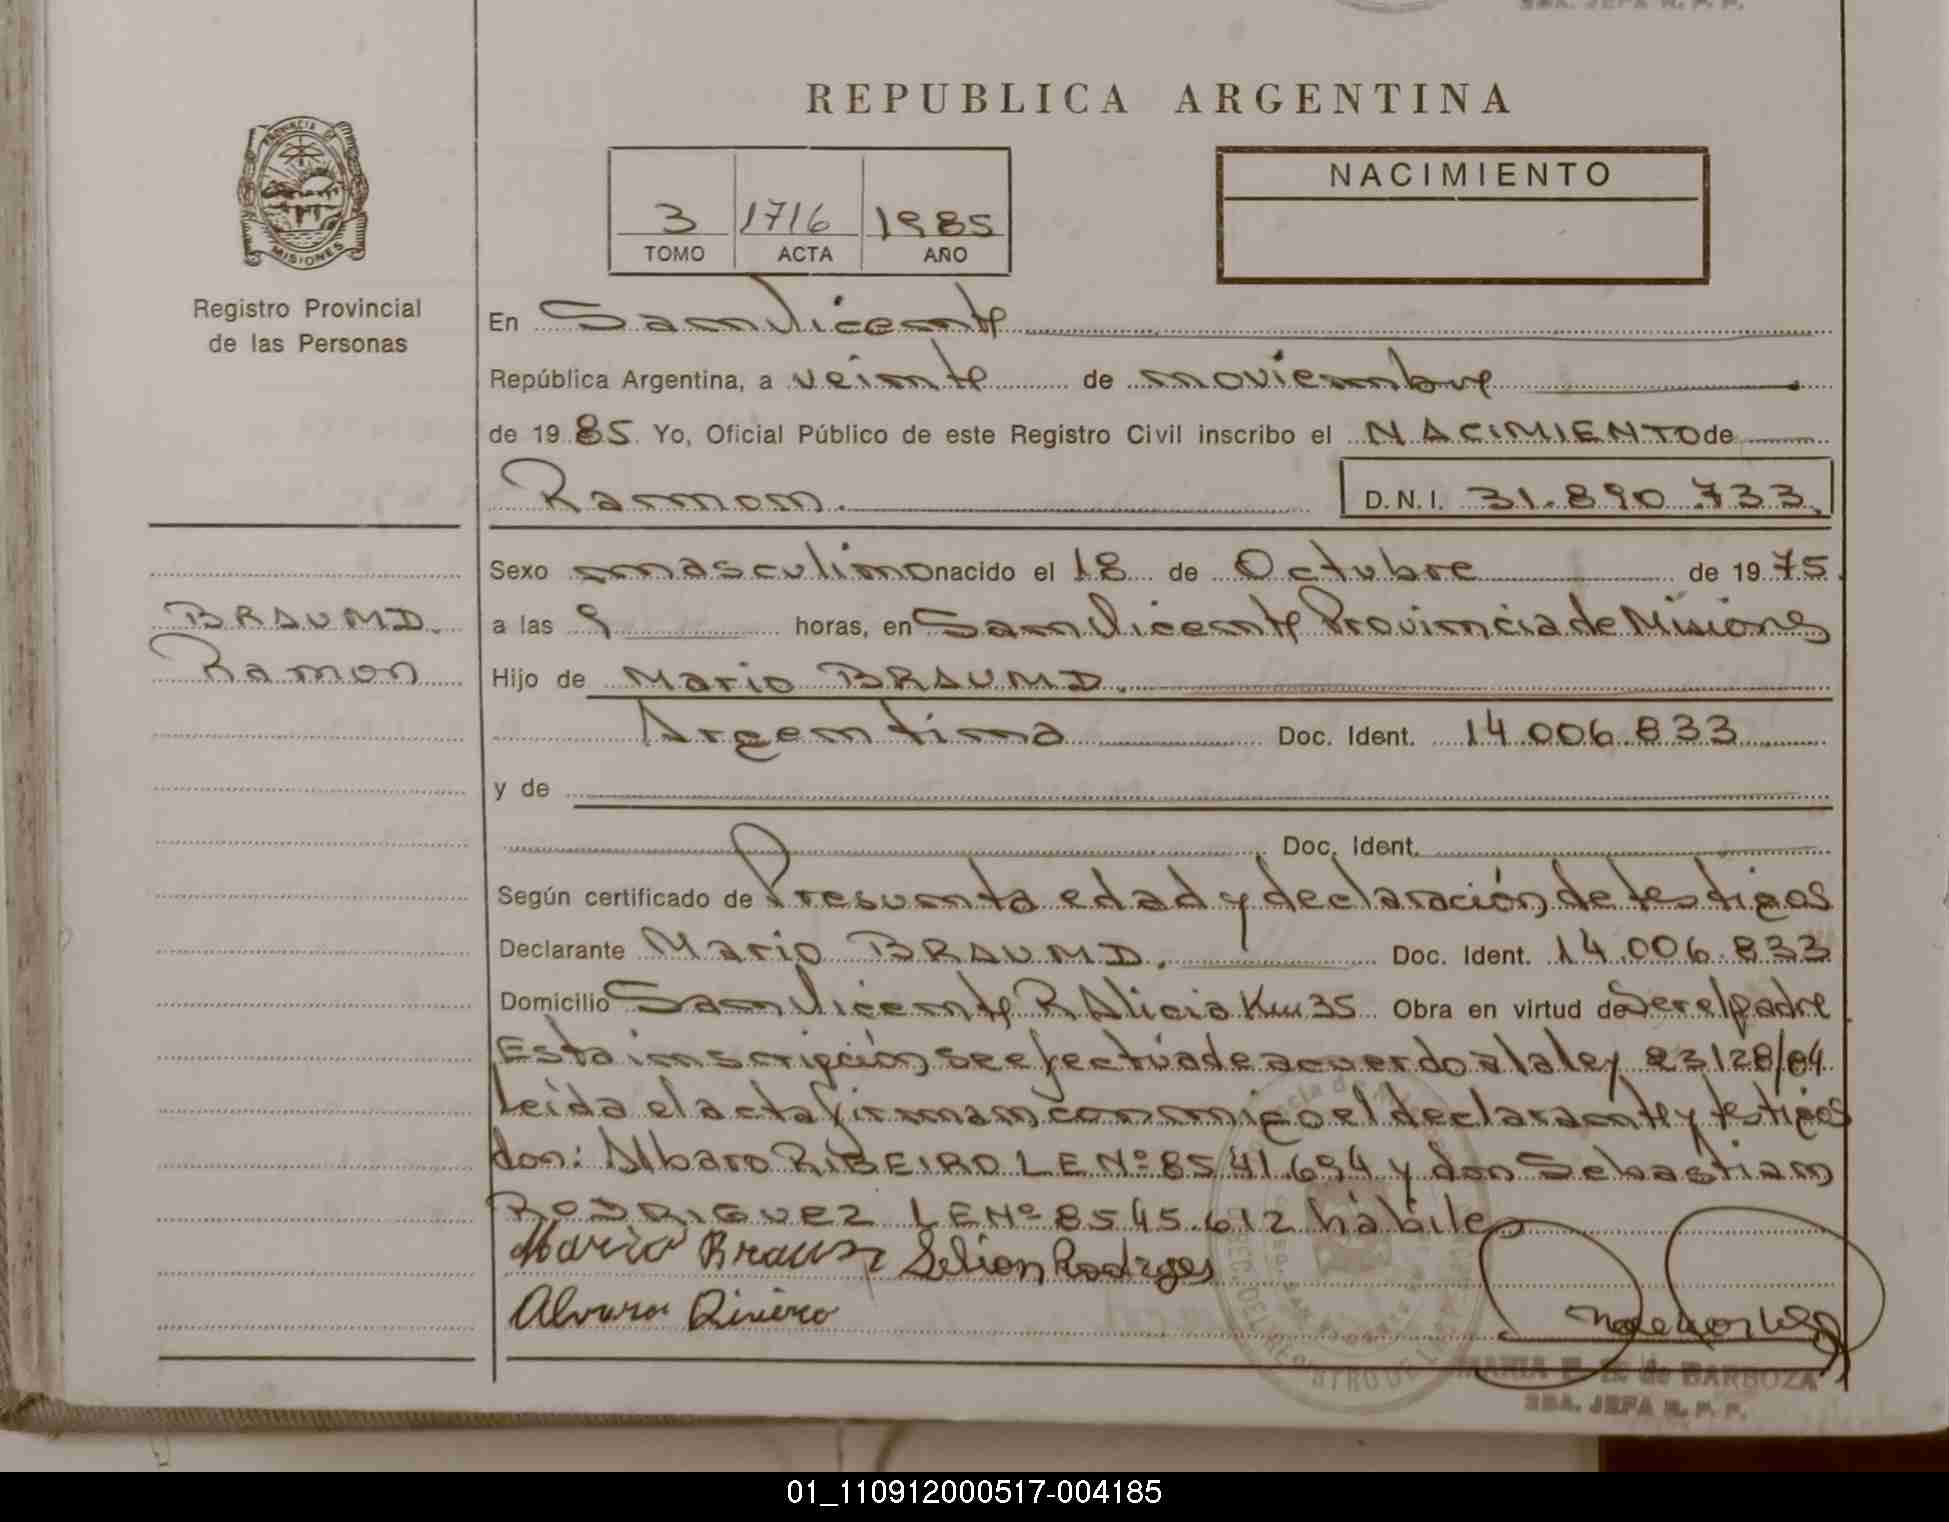 SRA. JEFA R. P. P.
REPUBLICA ARGENTINA
PROVINCIA DE
MISIONES
Registro Provincial
de las Personas
3 1716 1985
TOMO ACTA AÑO
NACIMIENTO
En San Vicente
República Argentina, a veinte de noviembre
de 19 85 Yo, Oficial Público de este Registro Civil inscribo el NACIMIENTO de
Ramon. D.N.I. 31.890.733
Sexo masculino nacido el 18 de Octubre de 19 75
BRAUND.
Ramon
a las 9 horas, en San Vicente Provincia de Misiones
Hijo de Mario BRAUND.
Argentina Doc. Ident. 14.006.833
y de
Doc. Ident.
Según certificado de Presunta edad y declaración de testigos
Declarante Mario BRAUND. Doc. Ident. 14.006.833
Domicilio San Vicente R Alicia Km 35 Obra en virtud de Ser el padre
Esta inscripción se efectúa de acuerdo a la ley 23128/84
Leída el acta firman conmigo el declarante y testigos
don: Albaro RIBEIRO L E Nº 8541.694 y don Sebastian
RODRIGUEZ L E Nº 8545.612 hábiles
Mario Braun Rodrges
Alvaro Rivero
MARIA E. de BARBOZA
SRA. JEFA R. P. P.
01_110912000517-004185